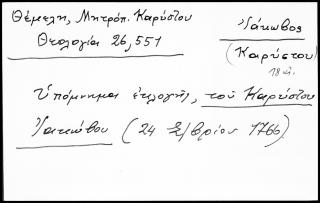 Θέμελη, Μητρόπ. Καρύστου
Θεολογία 26, 551
Ἰάκωβος
(Καρύστου)
18 αἰ.
Ὑπόμνημα ἐκλογῆς τοῦ Καρύστου
Ἰακώβου (24 Σ/βρίου 1766)